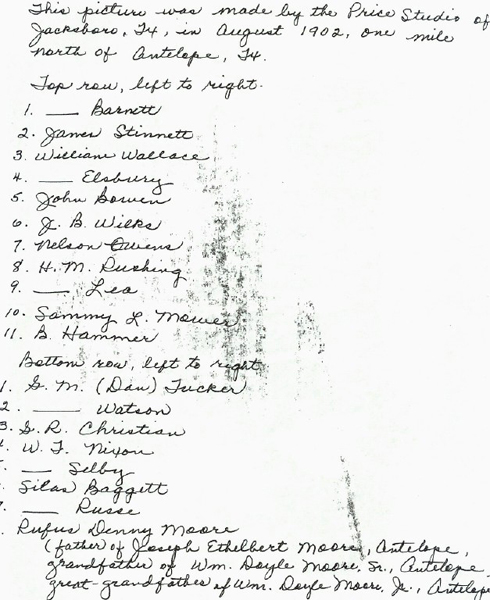 This picture was made by the Price Studio of
Jacksboro, TX, in August 1902, one mile
north of Antelope, TX.
Top row, left to right.
1. ___ Barnett
2. James Stinnett
3. William Wallace
4. ___ Elsbury
5. John Bowen
6. J. B. Wilks
7. Nelson Owens
8. H. M. Rushing
9. ___ Lea
10. Sammy L. Mower
11. B. Hammer
Bottom row, left to right
1. G. M. (Dan) Tucker
2. ___ Watson
3. S. R. Christian
4. W. F. Nixon
. ___ Selby
. Silas Baggett
. ___ Russe
. Rufus Denny Moore
(father of Joseph Ethelbert Moore, Antelope,
grandfather of Wm. Doyle Moore, Sr., Antelope
great-grandfather of Wm. Doyle Moore, Jr., Antelope